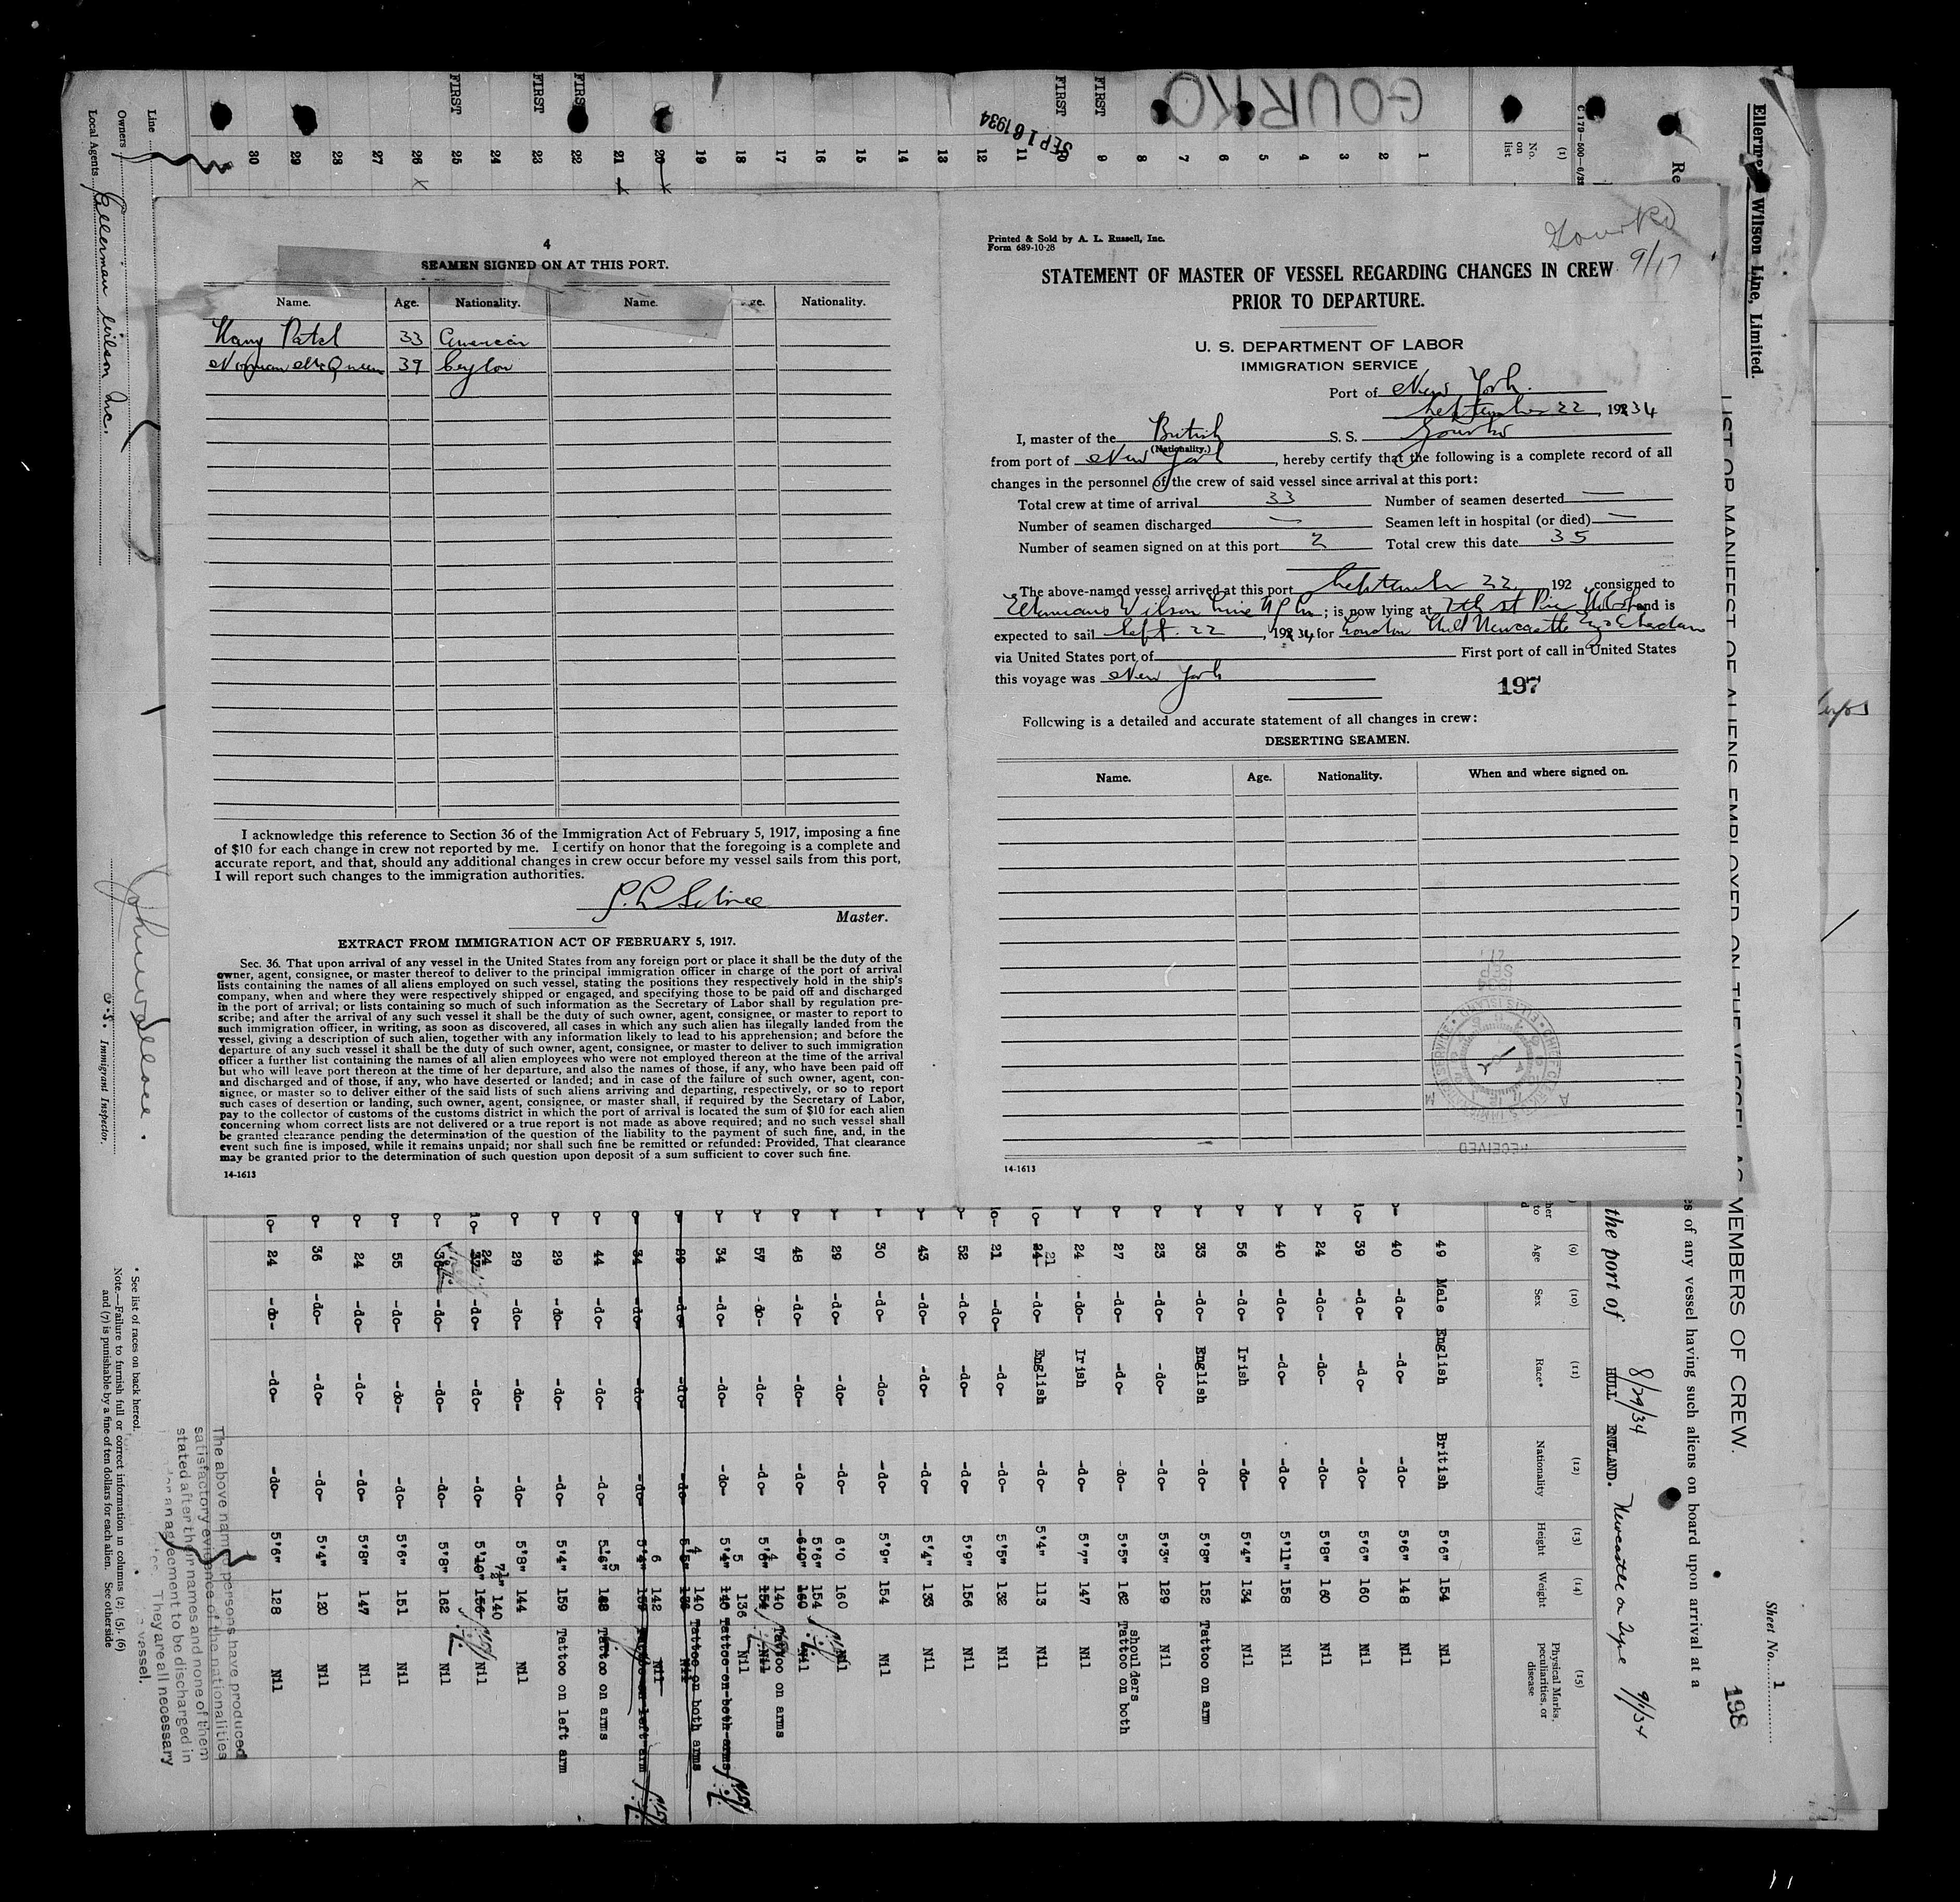 4
SEAMEN SIGNED ON AT THIS PORT.
Name. Age. Nationality. Name. Nationality.
Harry Patel 33 American
Norman McQueen 39 Ceylon
I acknowledge this reference to Section 36 of the Immigration Act of February 5, 1917, imposing a fine
of $10 for each change in crew not reported by me. I certify on honor that the foregoing is a complete and
accurate report, and that, should any additional changes in crew occur before my vessel sails from this port,
I will report such changes to the immigration authorities.
Master.
EXTRACT FROM IMMIGRATION ACT OF FEBRUARY 5, 1917.
Sec. 36. That upon arrival of any vessel in the United States from any foreign port or place it shall be the duty of the
owner, agent, consignee, or master thereof to deliver to the principal immigration officer in charge of the port of arrival
lists containing the names of all aliens employed on such vessel, stating the positions they respectively hold in the ship's
company, when and where they were respectively shipped or engaged, and specifying those to be paid off and discharged
in the port of arrival; or lists containing so much of such information as the Secretary of Labor shall by regulation pre-
scribe; and after the arrival of any such vessel it shall be the duty of such owner, agent, consignee, or master to report to
such immigration officer, in writing, as soon as discovered, all cases in which any such alien has illegally landed from the
vessel, giving a description of such alien, together with any information likely to lead to his apprehension; and before the
departure of any such vessel it shall be the duty of such owner, agent, consignee, or master to deliver to such immigration
officer a further list containing the names of all alien employees who were not employed thereon at the time of the arrival
but who will leave port thereon at the time of her departure, and also the names of those, if any, who have been paid off
and discharged and of those, if any, who have deserted or landed; and in case of the failure of such owner, agent, con-
signee, or master so to deliver either of the said lists of such aliens arriving and departing, respectively, or so to report
such cases of desertion or landing, such owner, agent, consignee, or master shall, if required by the Secretary of Labor,
pay to the collector of customs of the customs district in which the port of arrival is located the sum of $10 for each alien
concerning whom correct lists are not delivered or a true report is not made as above required; and no such vessel shall
be granted clearance pending the determination of the question of the liability to the payment of such fine, and, in the
event such fine is imposed, while it remains unpaid; nor shall such fine be remitted or refunded: Provided, That clearance
may be granted prior to the determination of such question upon deposit of a sum sufficient to cover such fine.
14-1613
Gourko
9/17
Printed & Sold by A. L. Russell, Inc.
Form 689-10-28
STATEMENT OF MASTER OF VESSEL REGARDING CHANGES IN CREW
PRIOR TO DEPARTURE.
U. S. DEPARTMENT OF LABOR
IMMIGRATION SERVICE
Port of New York.
September 22, 1934
I, master of the British S. S. Gourko
(Nationality.)
from port of New York, hereby certify that the following is a complete record of all
changes in the personnel of the crew of said vessel since arrival at this port:
Total crew at time of arrival 33 Number of seamen deserted —
Number of seamen discharged — Seamen left in hospital (or died) —
Number of seamen signed on at this port 2 Total crew this date 35
The above-named vessel arrived at this port September 22, 192 , consigned to
Ellermans Wilson Line ; is now lying at 7th st Pier and is
expected to sail Sept. 22, 1934, for London Hull Newcastle
via United States port of First port of call in United States
this voyage was New York
197
Following is a detailed and accurate statement of all changes in crew:
DESERTING SEAMEN.
Name. Age. Nationality. When and where signed on.
RECEIVED
14-1613
GOURKO
SEP 16 1934
C 179-500-6/33
Ellerman's Wilson Line, Limited.
LIST OR MANIFEST OF ALIENS EMPLOYED ON THE VESSEL AS MEMBERS OF CREW.
Sheet No. 1
198
es of any vessel having such aliens on board upon arrival at a
the port of HULL ENGLAND. 8/29/34 Newcastle on Tyne 9/1/34
(1) No. on list
(9) Age (10) Sex (11) Race* (12) Nationality (13) Height (14) Weight (15) Physical Marks, peculiarities, or disease
1 49 Male English British 5'6" 154 Nil
2 40 -do- -do- -do- 5'6" 148 Nil
3 39 -do- -do- -do- 5'6" 160 Nil
4 24 -do- -do- -do- 5'8" 160 Nil
5 40 -do- -do- -do- 5'11" 158 Nil
6 56 -do- Irish -do- 5'4" 134 Nil
7 33 -do- English -do- 5'8" 152 Tattoo on arm
8 23 -do- -do- -do- 5'3" 129 Nil
9 27 -do- -do- -do- 5'5" 162 Tattoo on both shoulders
24 -do- Irish -do- 5'7" 147 Nil
11 21 -do- English -do- 5'4" 113 Nil
12 21 -do- -do- -do- 5'5" 132 Nil
13 52 -do- -do- -do- 5'9" 156 Nil
14 43 -do- -do- -do- 5'4" 133 Nil
15 30 -do- -do- -do- 5'9" 154 Nil
16 29 -do- -do- -do- 6'0 160 Nil
17 48 -do- -do- -do- 5'6" 154 Nil
18 57 -do- -do- -do- 140 Tattoo on arms
19 34 -do- -do- -do- 136 Nil
20 39 -do- -do- -do- 140 Tattoo on both arms
21 34 -do- -do- -do- 142 Nil
22 44 -do- -do- -do- Tattoo on arms
23 29 -do- -do- -do- 5'4" 159 Tattoo on left arm
24 29 -do- -do- -do- 5'8" 144 Nil
25 24 -do- -do- -do- 140 Nil
26 -do- -do- -do- 5'8" 162 Nil
27 55 -do- -do- -do- 5'6" 151 Nil
28 24 -do- -do- -do- 5'8" 147 Nil
29 36 -do- -do- -do- 5'4" 120 Nil
30 24 -do- -do- -do- 5'6" 128 Nil
FIRST
FIRST
FIRST
FIRST
FIRST
Line
Owners
Local Agents Ellerman Wilson Inc.
U.S. Immigrant Inspector.
The above named persons have produced
satisfactory evidence of the nationalities
stated after their names and none of them
under an agreement to be discharged in
They are all necessary
vessel.
* See list of races on back hereof.
Note.—Failure to furnish full or correct information in columns (2), (5), (6)
and (7) is punishable by a fine of ten dollars for each alien. See other side